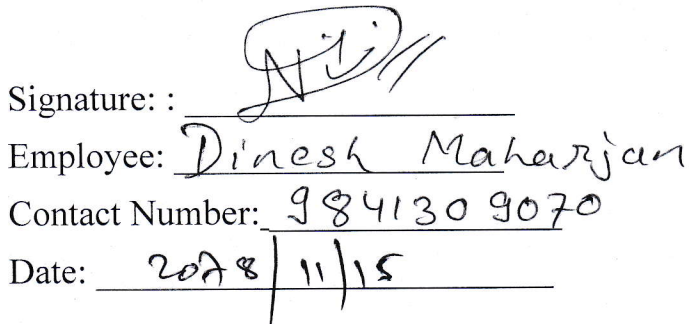 Signature: :
Employee: Dinesh Maharjan
Contact Number: 9841309070
Date: 2078/11/15